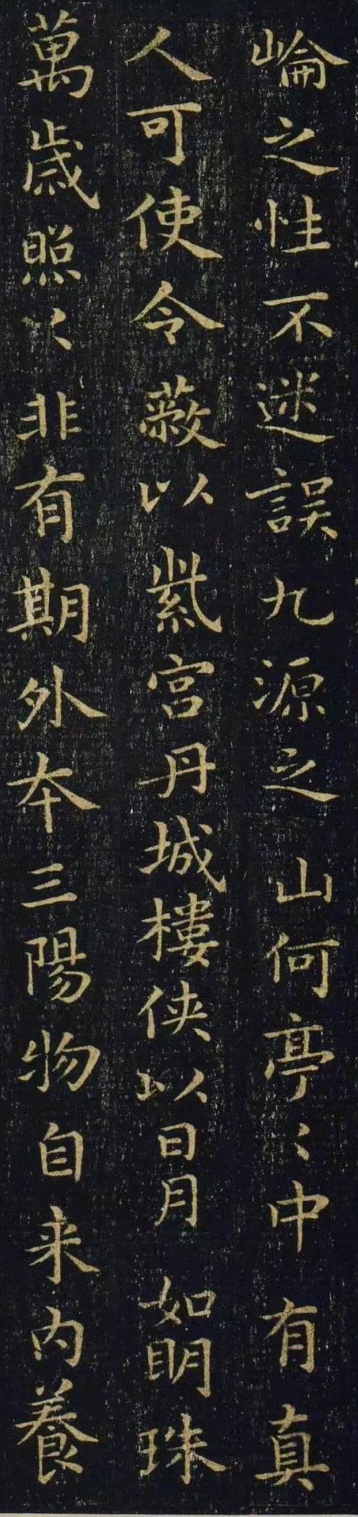 崘之性不迷誤九源之山何亭〻中有真
人可使令蔽以紫宮丹城樓俠以日月如明珠
萬歲照〻非有期外本三陽物自来内養